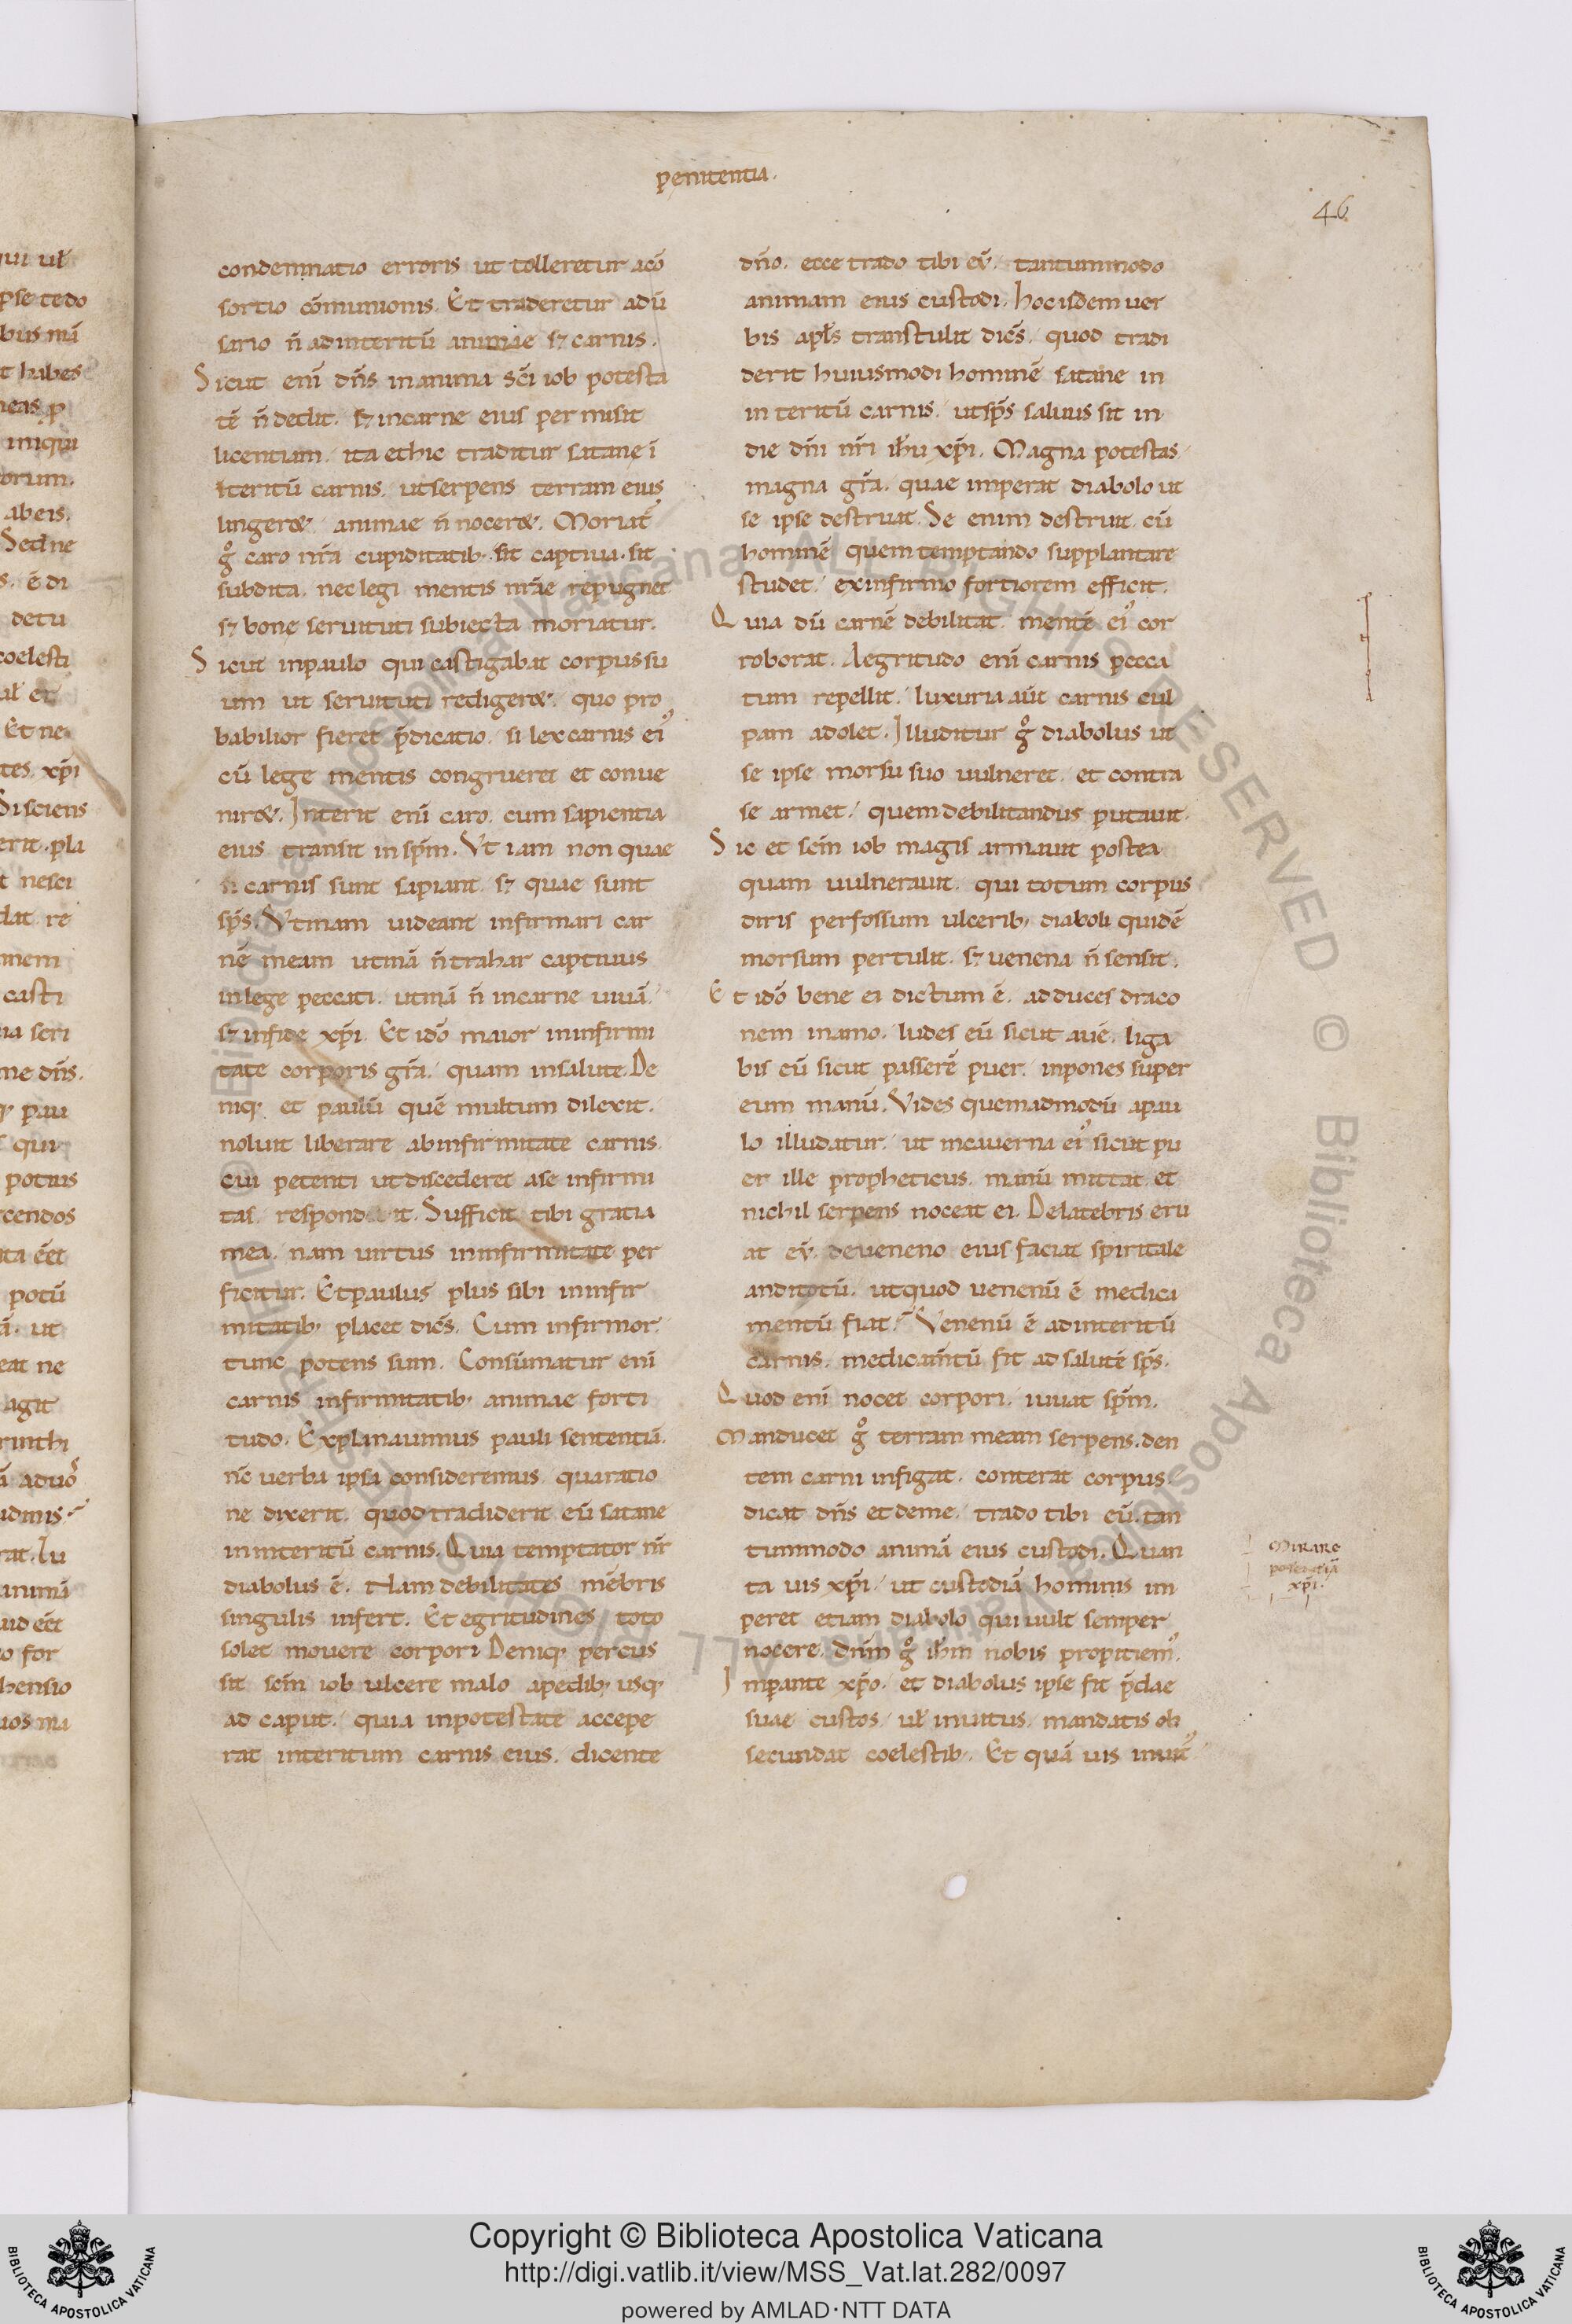 penitentia.
46
condemnatio erroris ut tolleretur acō
sortio cōmunionis. Et traderetur adū
sario n̄ adinteritū animae sꝫ carnis.
Sicut enī dn̄s inanima sc̄i iob potesta
tē n̄ dedit. sꝫ incarne eius permisit
licentiam. ita ethic traditur satane ī
īteritū carnis. utserpens terram eius
lingeret. animae n̄ noceret. Moriat᷑
gͦ caro nr̄a cupiditatib; sit captiua. sit
subdita. nec legi mentis nr̄ae repugnet
sꝫ bone seruituti subiecta moriatur.
Sicut inpaulo qui castigabat corpus su
um ut seruituti redigeret. quo pro
babilior fieret p̄dicatio. si lex carnis eiꝰ
cū lege mentis congrueret et conue
niret. Interit enī caro. cum sapientia
eius transit in sp̄m. Vt iam non quae
n̄ carnis sunt sapiant. sꝫ quae sunt
sp̄s. Vtinam uideant infirmari car
nē meam utinā n̄ trahar captiuus
inlege peccati. utinā n̄ incarne uiuā.
sꝫ infide xp̄i. Et idō maior ininfirmi
tate corporis gr̄a. quam insalute. De
niq; et paulū quē multum dilexit.
noluit liberare abinfirmitate carnis.
cui petenti ut discederet ase infirmi
tas. respondit. Sufficit tibi gratia
mea. nam uirtus ininfirmitate per
ficitur. Et paulus plus sibi ininfir
mitatib; placet dicēs. Cum infirmor.
tunc potens sum. Consūmatur enī
carnis infirmitatib; animae forti
tudo. Explanauimus pauli sententiā.
nc̄ uerba ipsa consideremus. qua ratio
ne dixerit. quod tradiderit eū satane
ininteritū carnis. Quia temptator nr̄
diabolus ē. Nam debilitates mēbris
singulis infert. Et egritudines toto
solet mouere corpori. Deniq; percus
sit sc̄m iob ulcere malo apedib; usq;
ad caput. quia inpotestate accepe
rat interitum carnis eius. dicente
dn̄o. ecce trado tibi eū. tantummodo
animam eius custodi. hoc isdem uer
bis apl̄s transtulit dicēs. quod tradi
derit huiusmodi hominē satane in
interitū carnis. ut sp̄s saluus sit in
die dn̄i nr̄i ih̄u xp̄i. Magna potestas.
magna gr̄a. quae imperat diabolo ut
se ipse destruat. Se enim destruit cū
hominē quem temptando supplantare
studet. ex infirmo fortiorem efficit.
Quia dū carnē debilitat. mentē eiꝰ cor
roborat. Aegritudo enī carnis pecca
tum repellit. luxuria aūt carnis cul
pam adolet. Illuditur gͦ diabolus ut
se ipse morsu suo uulneret. et contra
se armet. quem debilitandus putauit.
Sic et sc̄m iob magis armauit postea
quam uulnerauit. qui totum corpus
diris perfossum ulcerib; diaboli quidē
morsum pertulit. sꝫ uenena n̄ sensit.
Et idō bene ei dictum ē. adduces draco
nem inamo. ludes eū sicut auē. liga
bis eū sicut passerē puer. inpones super
eum manū. Vides quemadmodū apau
lo illudatur. ut incauerna eiꝰ sicut pu
er ille propheticus. manū mittat et
nichil serpens noceat ei. De latebris eru
at eū. deueneno eius faciat spiritale
anditotū. utquod uenenū ē medica
mentū fiat. Venenū ē adinteritū
carnis. medicam̄tū fit ad salutē sp̄s.
Quod enī nocet corpori. iuuat sp̄m.
Manducet gͦ terram meam serpens. den
tem carni infigat. conterat corpus.
dicat dn̄s et deme. trado tibi eū. tan
tummodo animā eius custodi. Quan
ta uis xp̄i. ut custodiā hominis im
peret etiam diabolo qui uult semper
nocere. dn̄m gͦ ih̄m nobis propitiemꝰ.
Inpante xp̄o. et diabolus ipse fit p̄dae
suae custos. ul̄ inuitus. mandatis ob
secundat coelestib; Et quā uis inmit᷑
Mirare
potentiā
xp̄i.
Copyright © Biblioteca Apostolica Vaticana
http://digi.vatlib.it/view/MSS_Vat.lat.282/0097
powered by AMLAD·NTT DATA